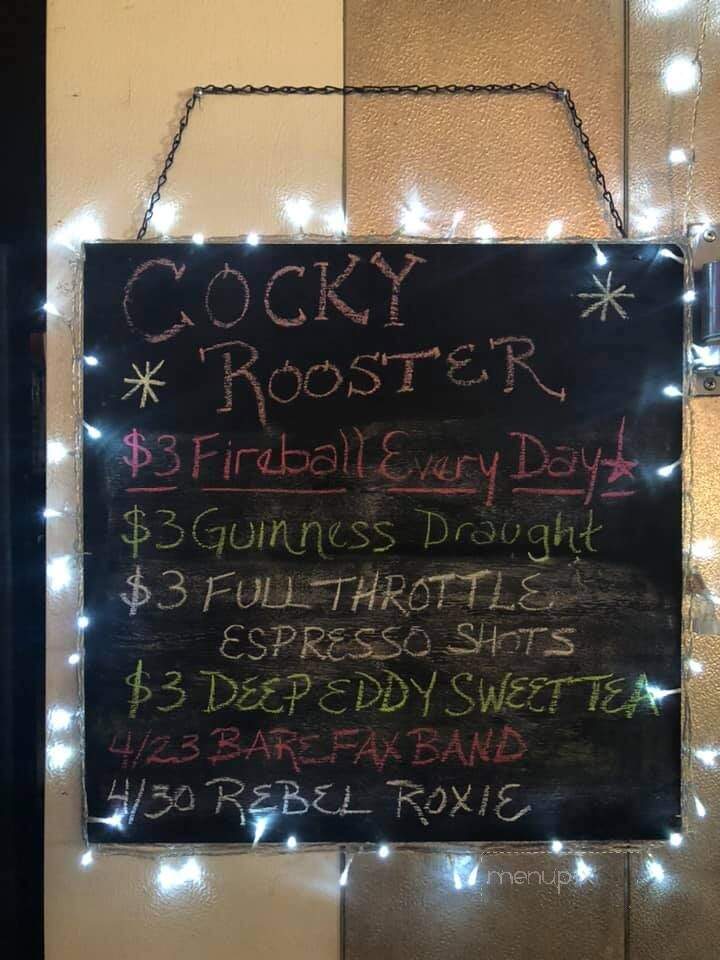 COCKY
ROOSTER
$3 Fireball Every Day
$3 Guinness Draught
$3 FULL THROTTLE
ESPRESSO SHOTS
$3 DEEP EDDY SWEET TEA
4/23 BAREFAX BAND
4/30 REBEL ROXIE
menupix